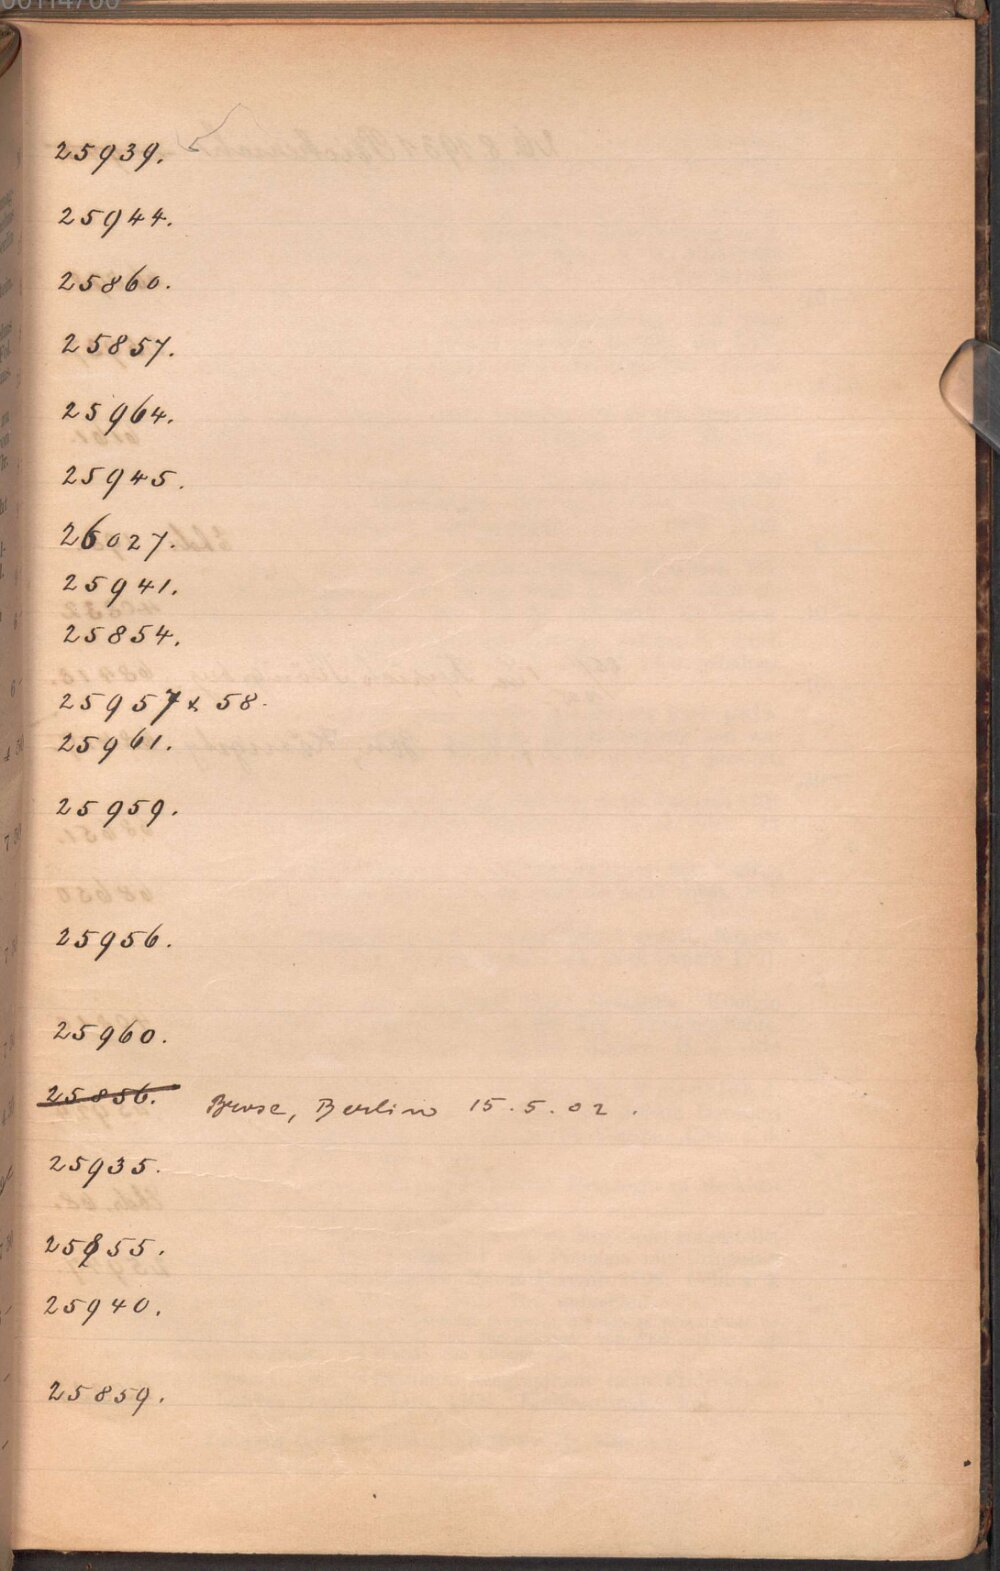 25939.
25944.
25860.
25857.
25964.
25945.
26027.
25941.
25854.
25957 & 58.
25961.
25959.
25956.
25960.
25856. Brose, Berlin 15.5.02.
25935.
25855.
25940.
25859.